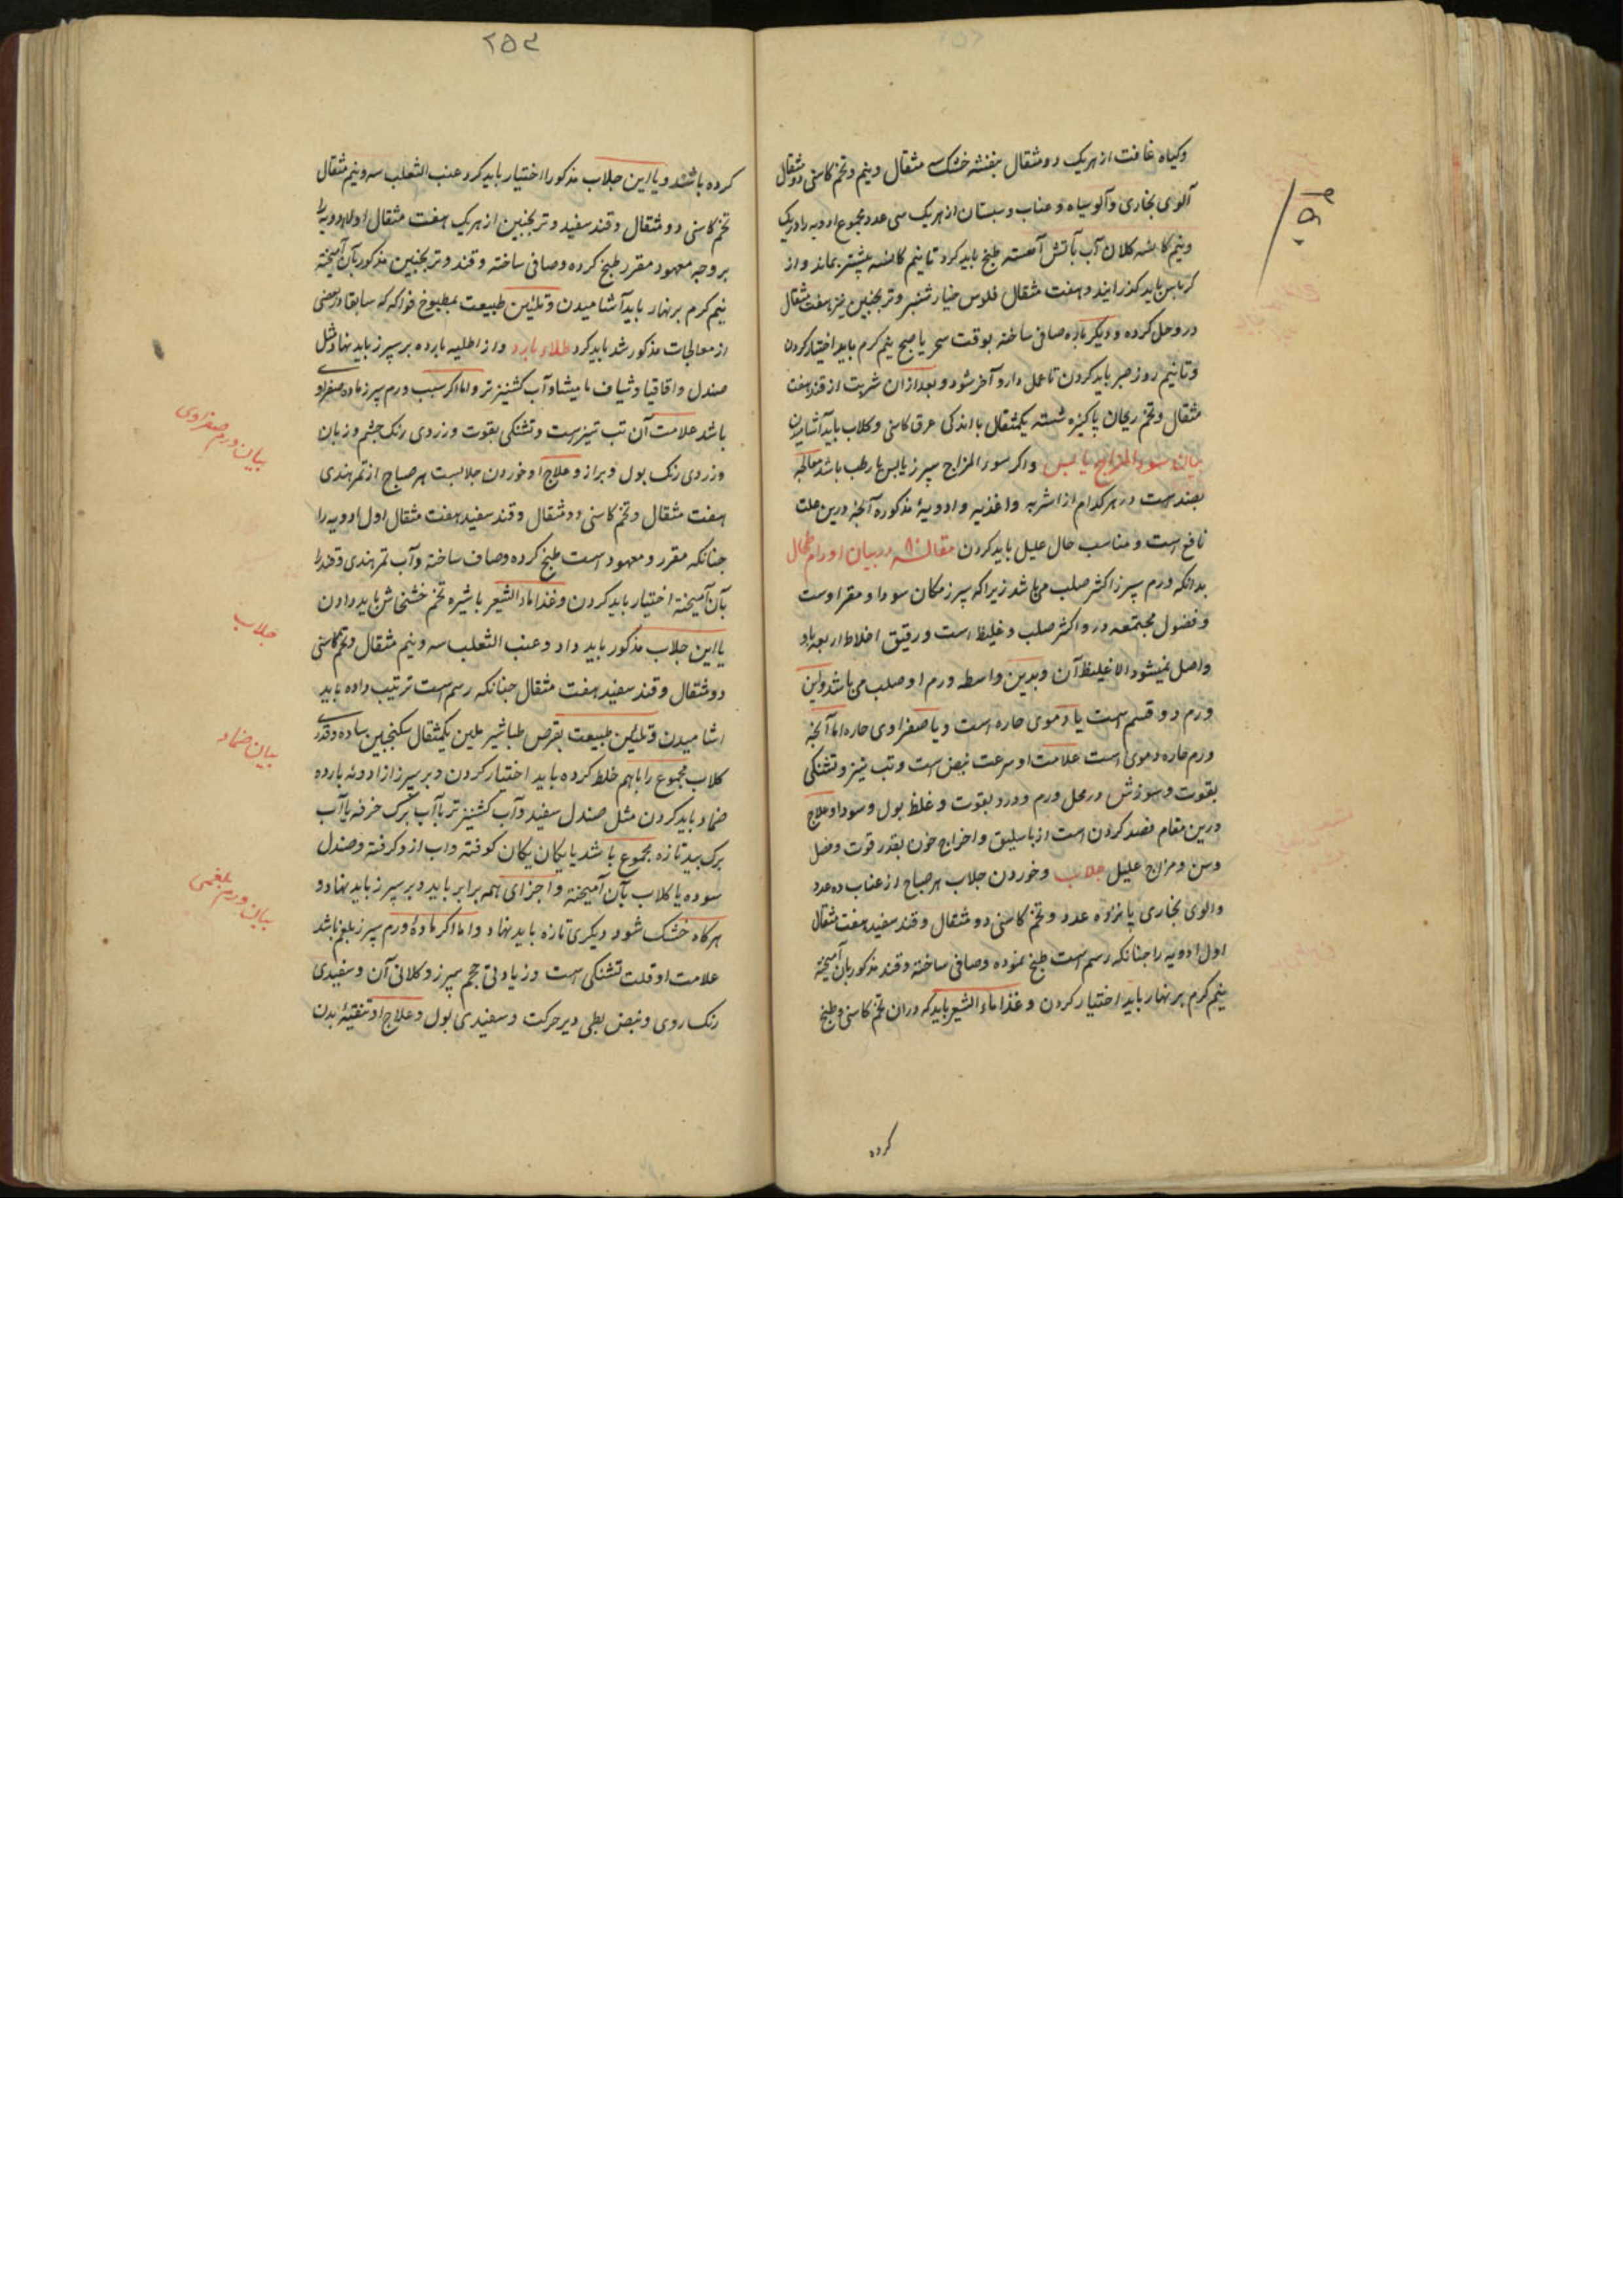 وکیاه غافت از هریک دو مثقال بنفشه خشک سه مثقال و نیم و تخم کاسنی دو مثقال
آلوی بخاری و آلو سیاه و عناب و سبستان از هریک سی عدد مجموع ادویه را در یک
و نیم کاسه کلان آب بآتش آهسته طبخ باید کرد تا نیم کاسه بیشتر بماند و از
کرباس باید گذرانید و هفت مثقال فلوس خیار شنبر و ترنجبین نیز هفت مثقال
درو حل کرده و دیکر باره صافی ساخته بوقت سحر یا صبح نیم کرم باید اختیار کردن
و تا نیم روز صبر باید کردن تا عمل دارو آخر شود و بعد از ان شربت از قند هفت
مثقال و تخم ریحان پاکیزه شسته یکمثقال با اندکی عرق کاسنی و کلاب باید آشامیدن
بیان سوء المزاج یابس واکر سوء المزاج سپرز یابس یا رطب باشد معالجه
بضدست در هر کدام از اشربه و اغذیه و ادویهٔ مذکوره آنچه درین علت
نافع است و مناسب حال علیل باید کردن مقاله ۸ در بیان اورام طحال
بدانکه ورم سپرز اکثر صلب می باشد زیراکه سپرز مکان سودا و مقر اوست
و فضول مجتمعه درو اکثر صلب و غلیظ است و رقیق اخلاط اربعه باو
واصل نمیشود الا غلیظ آن و بدین واسطه ورم او صلب می باشد و این
ورم دو قسم است یا دموی حاره است و یا صفراوی حاره اما آنچه
ورم حاره دموی است علامت او سرعت نبض است و تب تیز و تشنکی
بقوت و سوزش در محل ورم و درد بقوت و غلظ بول و سواد و علاج
درین مقام فصد کردن است از باسلیق و اخراج خون بقدر قوت و فصل
و سن و مزاج علیل جلاب و خوردن جلاب هر صباح از عناب ده عدد
والوی بخاری پانزده عدد و تخم کاسنی دو مثقال و قند سفید هفت مثقال
اول ادویه را جنانکه رسم است طبخ نموده و صافی ساخته و قند مذکور بان آمیخته
نیم کرم بر نهار باید اختیار کردن و غذا ماء الشعیر باید که دران تخم کاسنی و طبخ
کرده
۲۵۴
کرده باشند و یا این جلاب مذکور اختیار باید کرد عنب الثعلب سه و نیم مثقال
تخم کاسنی دو مثقال و قند سفید و ترنجبین از هریک هفت مثقال اول ادویه را
بر وجه معهود مقرر طبخ کرده و صافی ساخته و قند و ترنجبین مذکور بآن آمیخته
نیم کرم بر نهار باید آشامیدن و تلئین طبیعت بمطبوخ فواکه که سابقا در بعضی
از معالجات مذکور شد باید کرد طلاء بارد و از اطلیه بارده بر سپرز باید نهاد مثل
صندل و اقاقیا و شیاف مامیثا و آب کشنیز تر و اما اکر سبب ورم سپرز ماده صفراوی
باشد علامت آن تب تیزست و تشنکی بقوت و زردی رنک جشم و زبان
و زردی رنک بول و براز و علاج او خوردن جلابست هر صباح از تمر هندی
هفت مثقال و تخم کاسنی دو مثقال و قند سفید هفت مثقال اول ادویه را
جنانکه مقرر و معهود است طبخ کرده و صاف ساخته و آب تمر هندی و قند را
بآن آمیخته اختیار باید کردن و غذا ماء الشعیر با شیره تخم خشخاش باید دادن
یا این جلاب مذکور باید داد و عنب الثعلب سه و نیم مثقال و تخم کاسنی
دو مثقال و قند سفید هفت مثقال جنانکه رسم است ترتیب داده باید
اشامیدن و تلئین طبیعت بقرص طباشیر ملین یکمثقال سکنجبین ساده و قدری
کلاب مجموع را باهم خلط کرده باید اختیار کردن و بر سپرز از ادویه بارده
ضماد باید کردن مثل صندل سفید و آب کشنیز تر یا آب برک خرفه یا آب
برک بید تازه مجموع باشد یا یکان یکان کوفته و اب ازو کرفته و صندل
سوده یا کلاب بآن آمیخته و اجزای همه برابر باید و بر سپرز باید نهاد و
هرکاه خشک شود دیکری تازه باید نهاد و اما اکر مادهٔ ورم سپرز بلغم باشد
علامت او قلت تشنکی است و زیادتی حجم سپرز و کلانی آن و سفیدی
رنک روی و نبض بطی دیر حرکت و سفیدی بول و علاج او تنقیهٔ بدن
بیان ورم صفراوی
جلاب
بیان ضماد
بیان ورم بلغمی